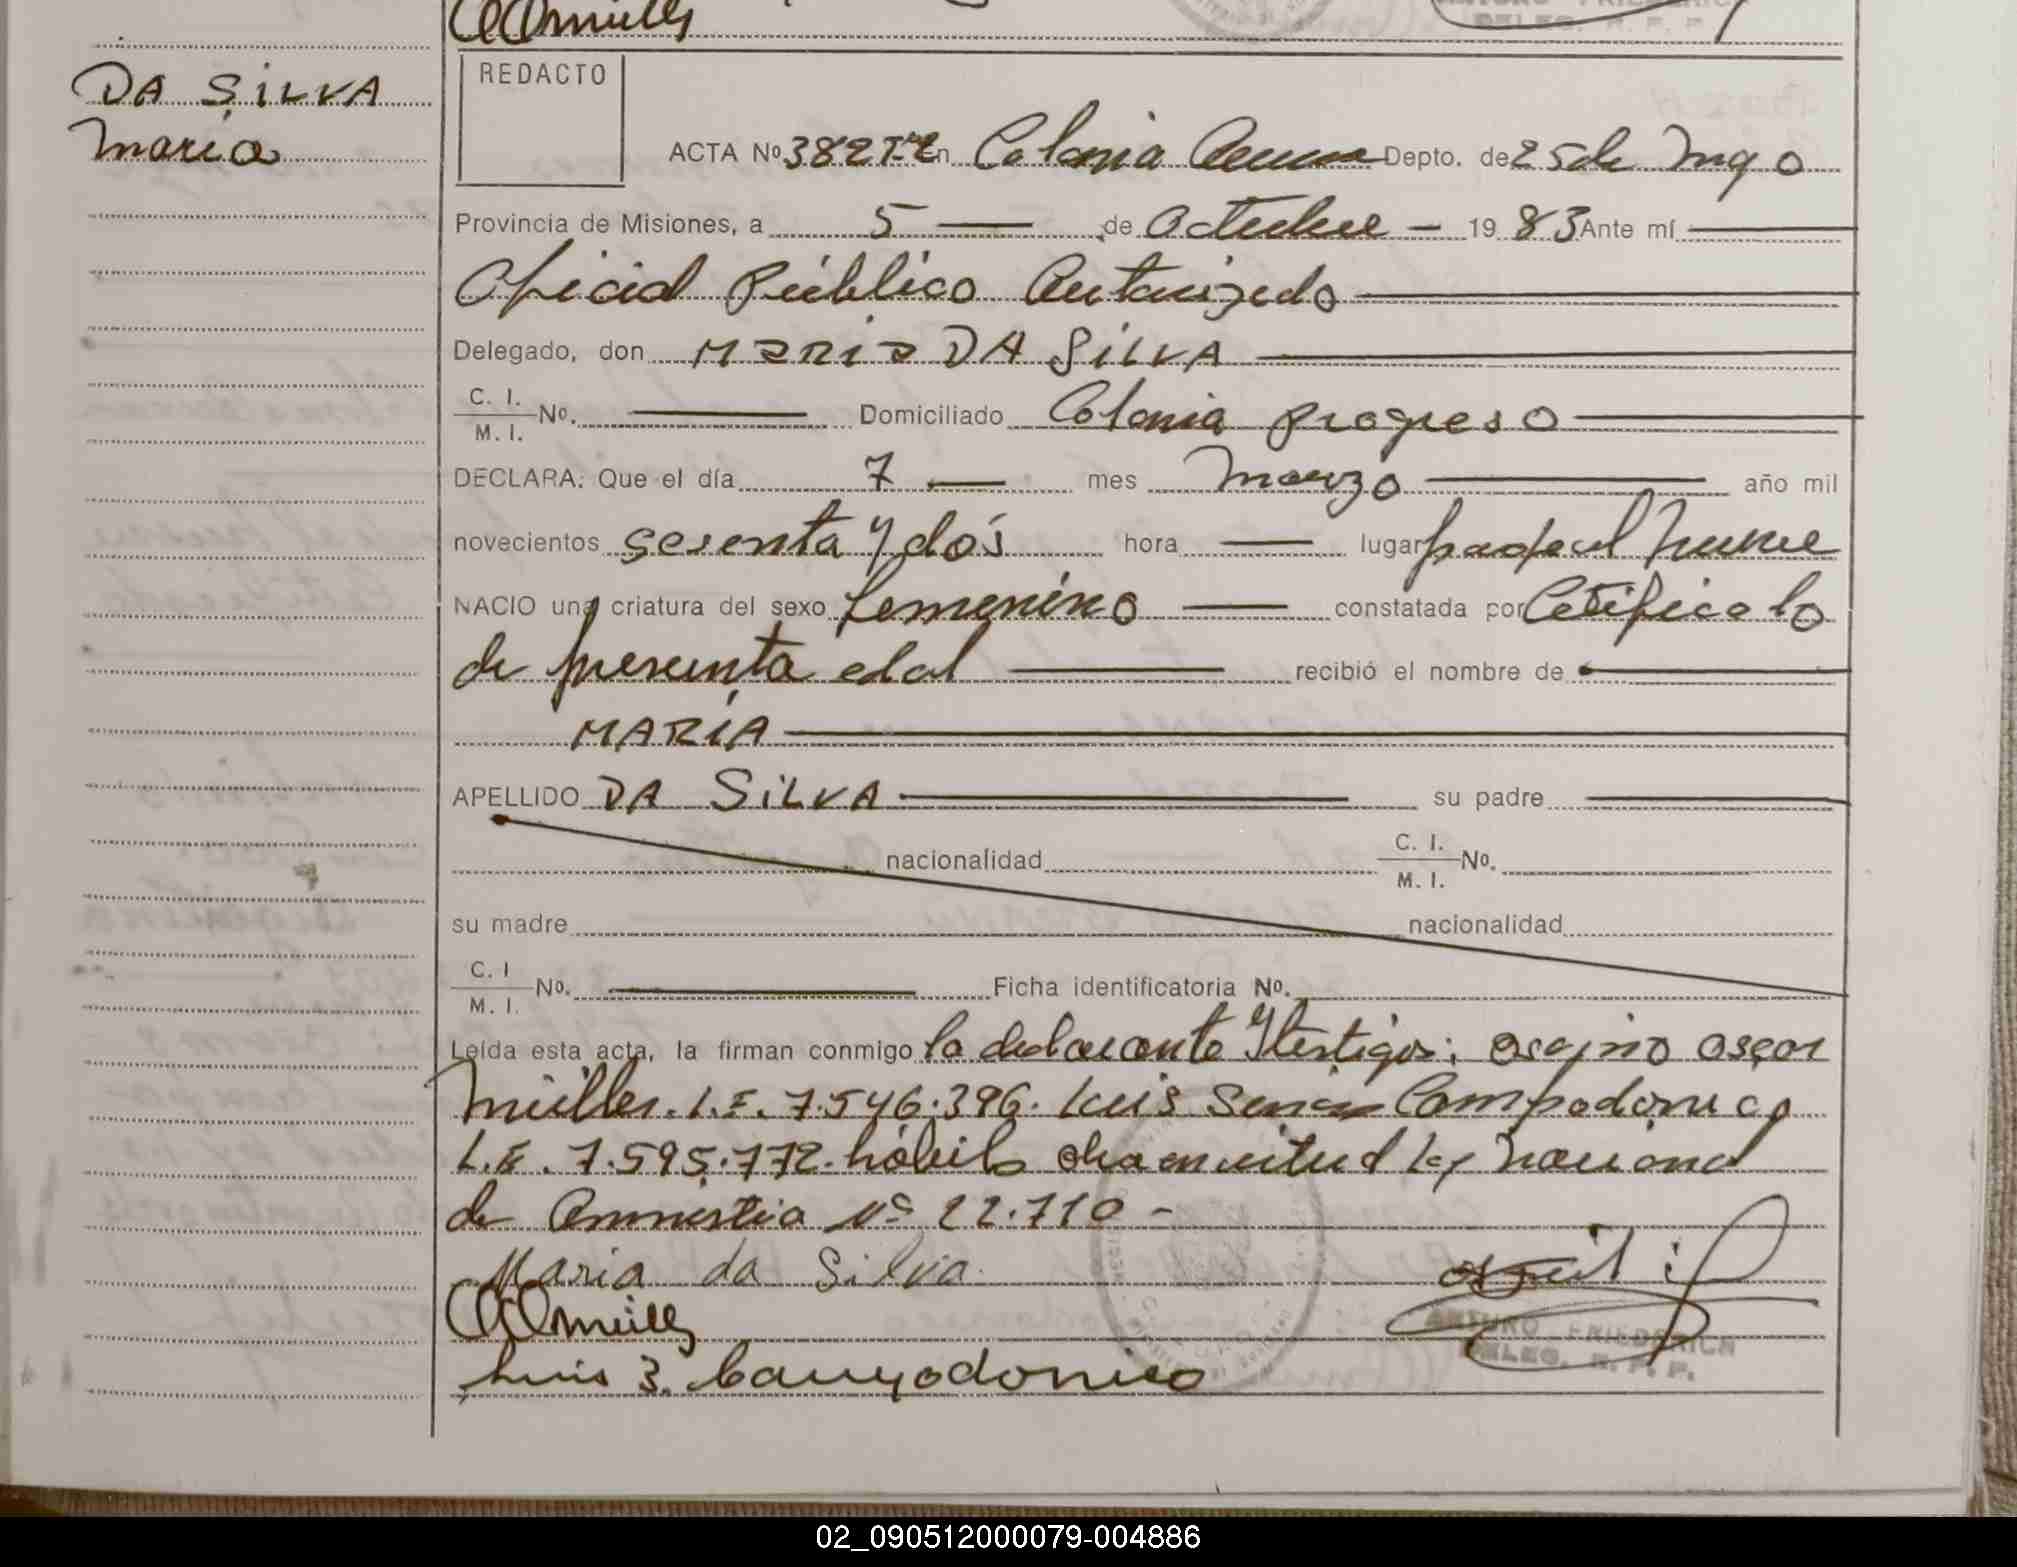 DA SILVA
María
REDACTO
ACTA Nº 382 En Colonia Depto. de 25 de Mayo
Provincia de Misiones, a 5 — de Octubre — 19 83 Ante mí —
Oficial Público Autorizado —
Delegado, don MARIA DA SILVA —
C. I.
M. I. Nº. — Domiciliado Colonia Progreso —
DECLARA: Que el día 7 — mes marzo — año mil
novecientos sesenta y dós hora — lugar
NACIO una criatura del sexo femenino — constatada por
de presunta edad — recibió el nombre de —
MARÍA —
APELLIDO DA SILVA — su padre —
nacionalidad C. I.
M. I. Nº.
su madre nacionalidad
C. I
M. I. Nº. — Ficha identificatoria Nº.
Leída esta acta, la firman conmigo la declarante y testigos: Oscar
Müller. L.E. 7.546.396. Luis Campodonico
L.E. 7.595.772. hábiles Ley Nacional
de Amnistia Nº 22.710 -
Maria da Silva
Müller
ARTURO FRIEDERICH
DELEG. R. P. P.
Luis S. Campodonico
02_090512000079-004886